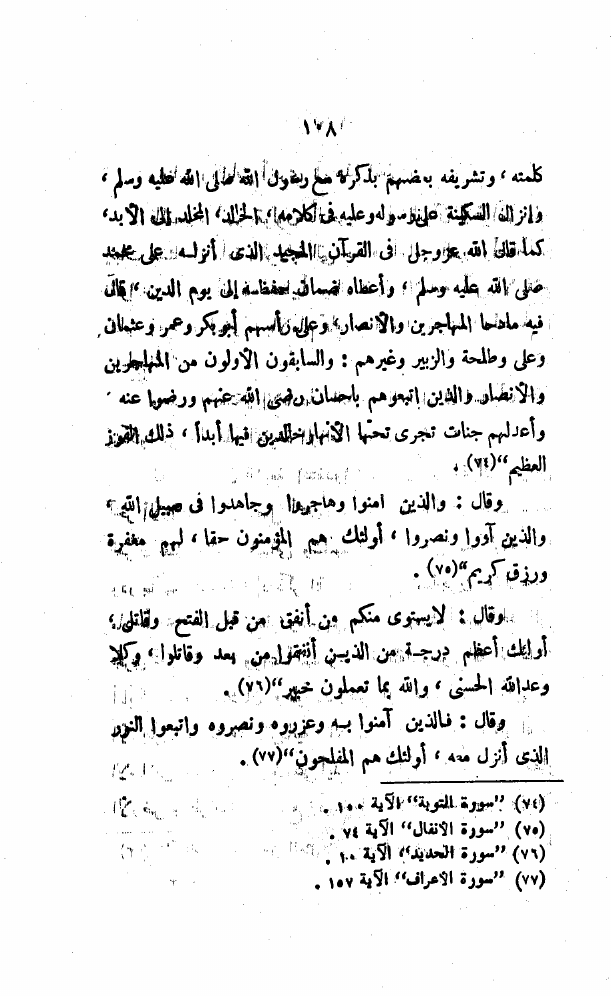 ١٧٨
كلمته ، وتشريفه بعضهم بذكره مع رسول الله صلى الله عليه وسلم ،
وانزال السكينة على رسوله وعليه فى كلامه ، الخالد ، المخلد إلى الأبد ،
كما قال الله عزوجل فى القرآن المجيد الذى أنزلـه على محمد
صلى الله عليه وسلم ، وأعطاه ضمان حفظه إلى يوم الدين ، قال
فيه مادحا المهاجرين والأنصار ، وعلى رأسهم أبوبكر وعمر وعثمان
وعلى وطلحة والزبير وغيرهم : والسابقون الأولون من المهاجرين
والأنصار والذين اتبعوهم باحسان رضى الله عنهم ورضوا عنه
وأعدلهم جنات تجرى تحتها الأنهار خالدين فيها أبداً ، ذلك الفوز
العظيم“(٧٤) .
وقال : والذين امنوا وهاجروا وجاهدوا فى سبيل الله ،
والذين آووا ونصروا ، أولئك هم المؤمنون حقا ، لهم مغفرة
ورزق كريم“(٧٥) .
وقال : لايستوى منكم من أنفق من قبل الفتح وقاتل ،
أولئك أعظم درجـة من الذيـن أنفقوا من بعد وقاتلوا ، وكلا
وعدالله الحسنى ، والله بما تعملون خبير“(٧٦) .
وقال : فالذين آمنوا بـه وعزروه ونصروه واتبعوا النور
الذى أنزل معه ، أولئك هم المفلحون“(٧٧) .
(٧٤) ”سورة التوبة“ الآية ١٠٠ .
(٧٥) ”سورة الانفال“ الآية ٧٤ .
(٧٦) ”سورة الحديد“ الآية ١٠ .
(٧٧) ”سورة الاعراف“ الآية ١٥٧ .